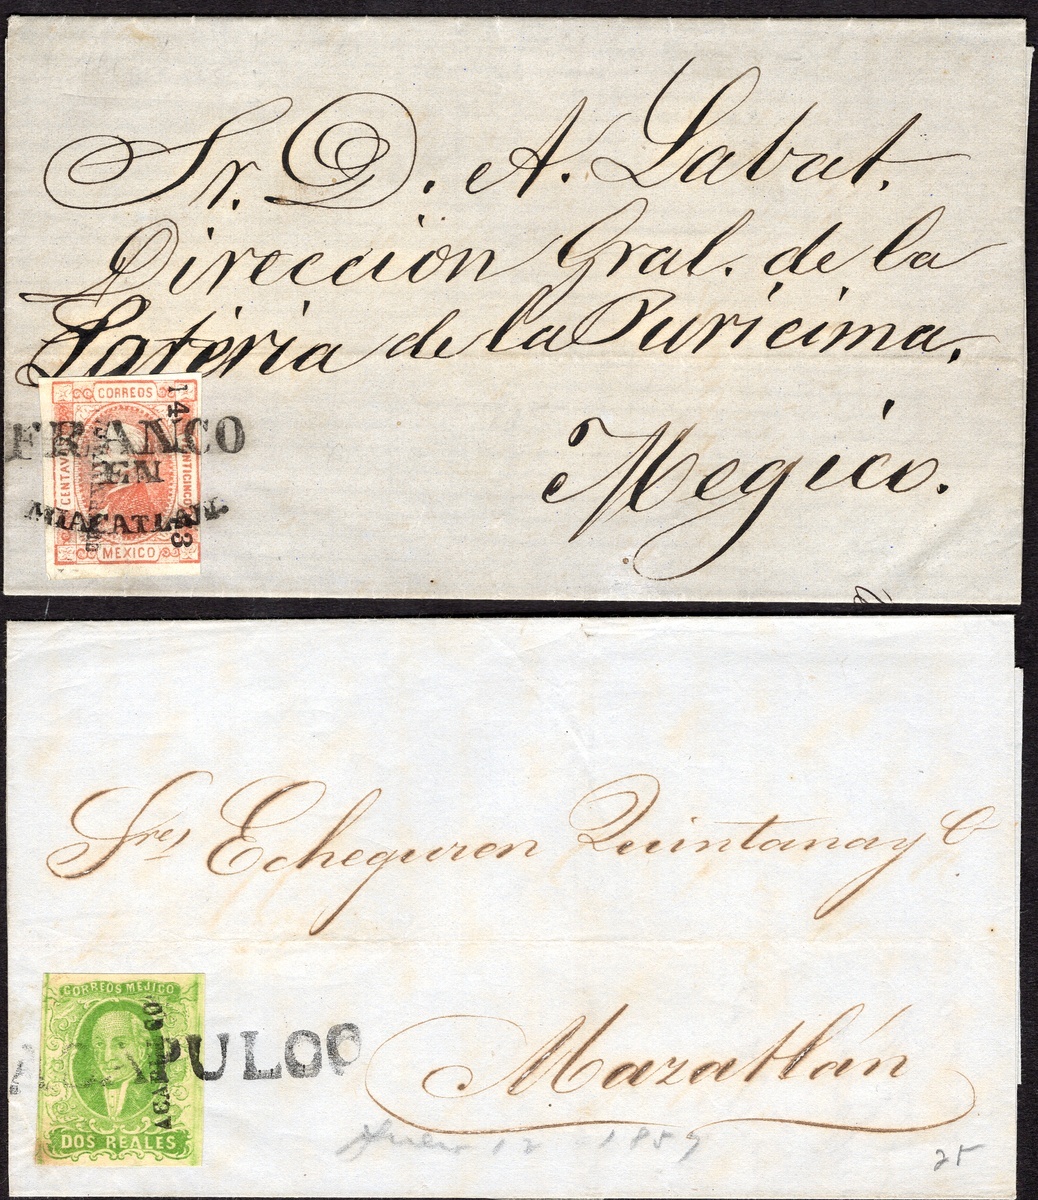 Sr. D. A. Labat.
Direccion Gral. de la
Loteria de la Puricima.
Megico.
CORREOS
14 73
CENTAVOS
VEINTICINCO
MEXICO
FRANCO
EN
MIACATLAN.
Sres Echeguren Quintana y C
Mazatlán
CORREOS MEJICO
ACAPULCO
ACAPULCO
DOS REALES
12 - 1859
25